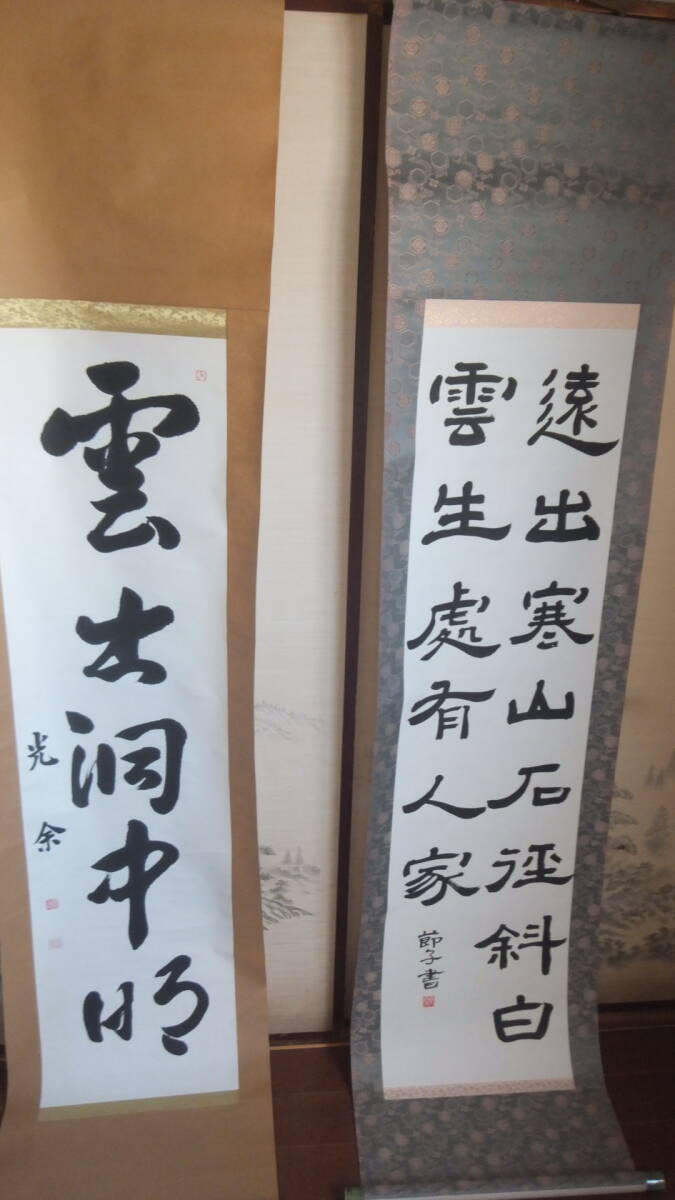 遠出寒山石徑斜白
雲生處有人家
節子書
雲出洞中明
光余